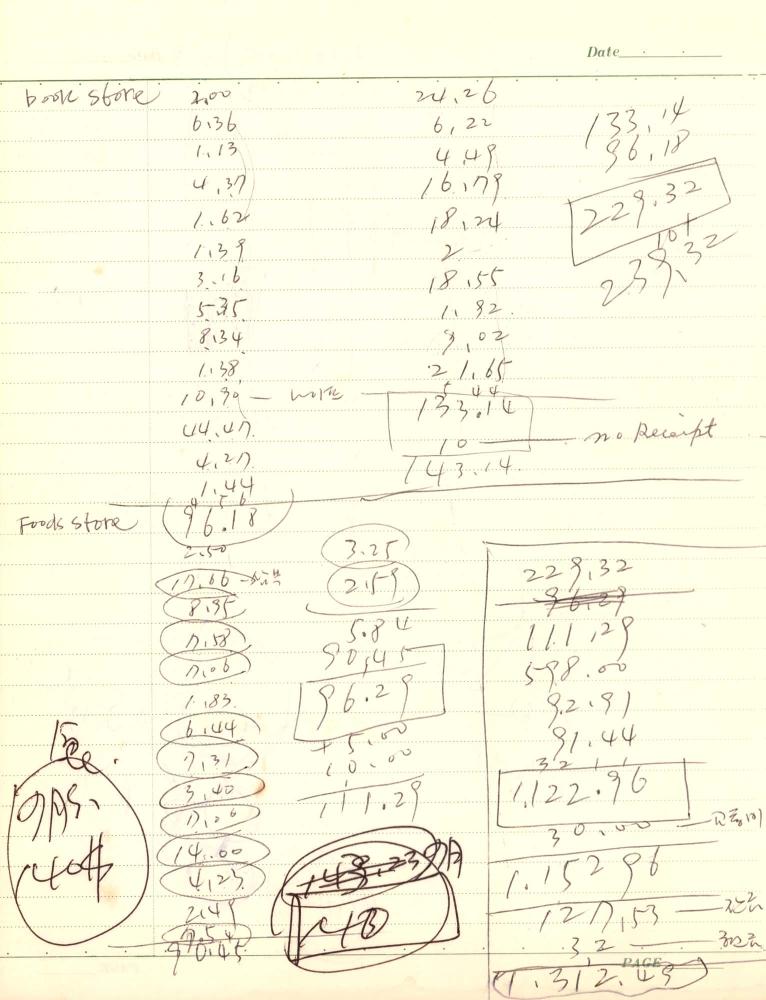 Date
book store 2.00
6.36
1.13
4.37
1.62
1.39
3.16
5.35
8.34
1.38
10.30
44.47
4.27
1.44
96.18
24.26
6.22
4.49
16.79
18.24
2
18.55
1.92
9.02
21.65
133.14
10 no Receipt
143.14
133.14
96.18
229.32
10
239.32
Foods store
2.50
17.66
8.95
7.58
7.06
1.83
6.44
7.31
3.40
7.26
14.00
4.23
2.49
90.45
3.25
2.59
5.84
90.45
96.29
+5.00
10.00
111.29
140
140$
229.32
96.29
111.29
598.00
92.91
91.44
1,122.96
30.00 교통비
1.152 96
127.53
32
1.312.49
PAGE